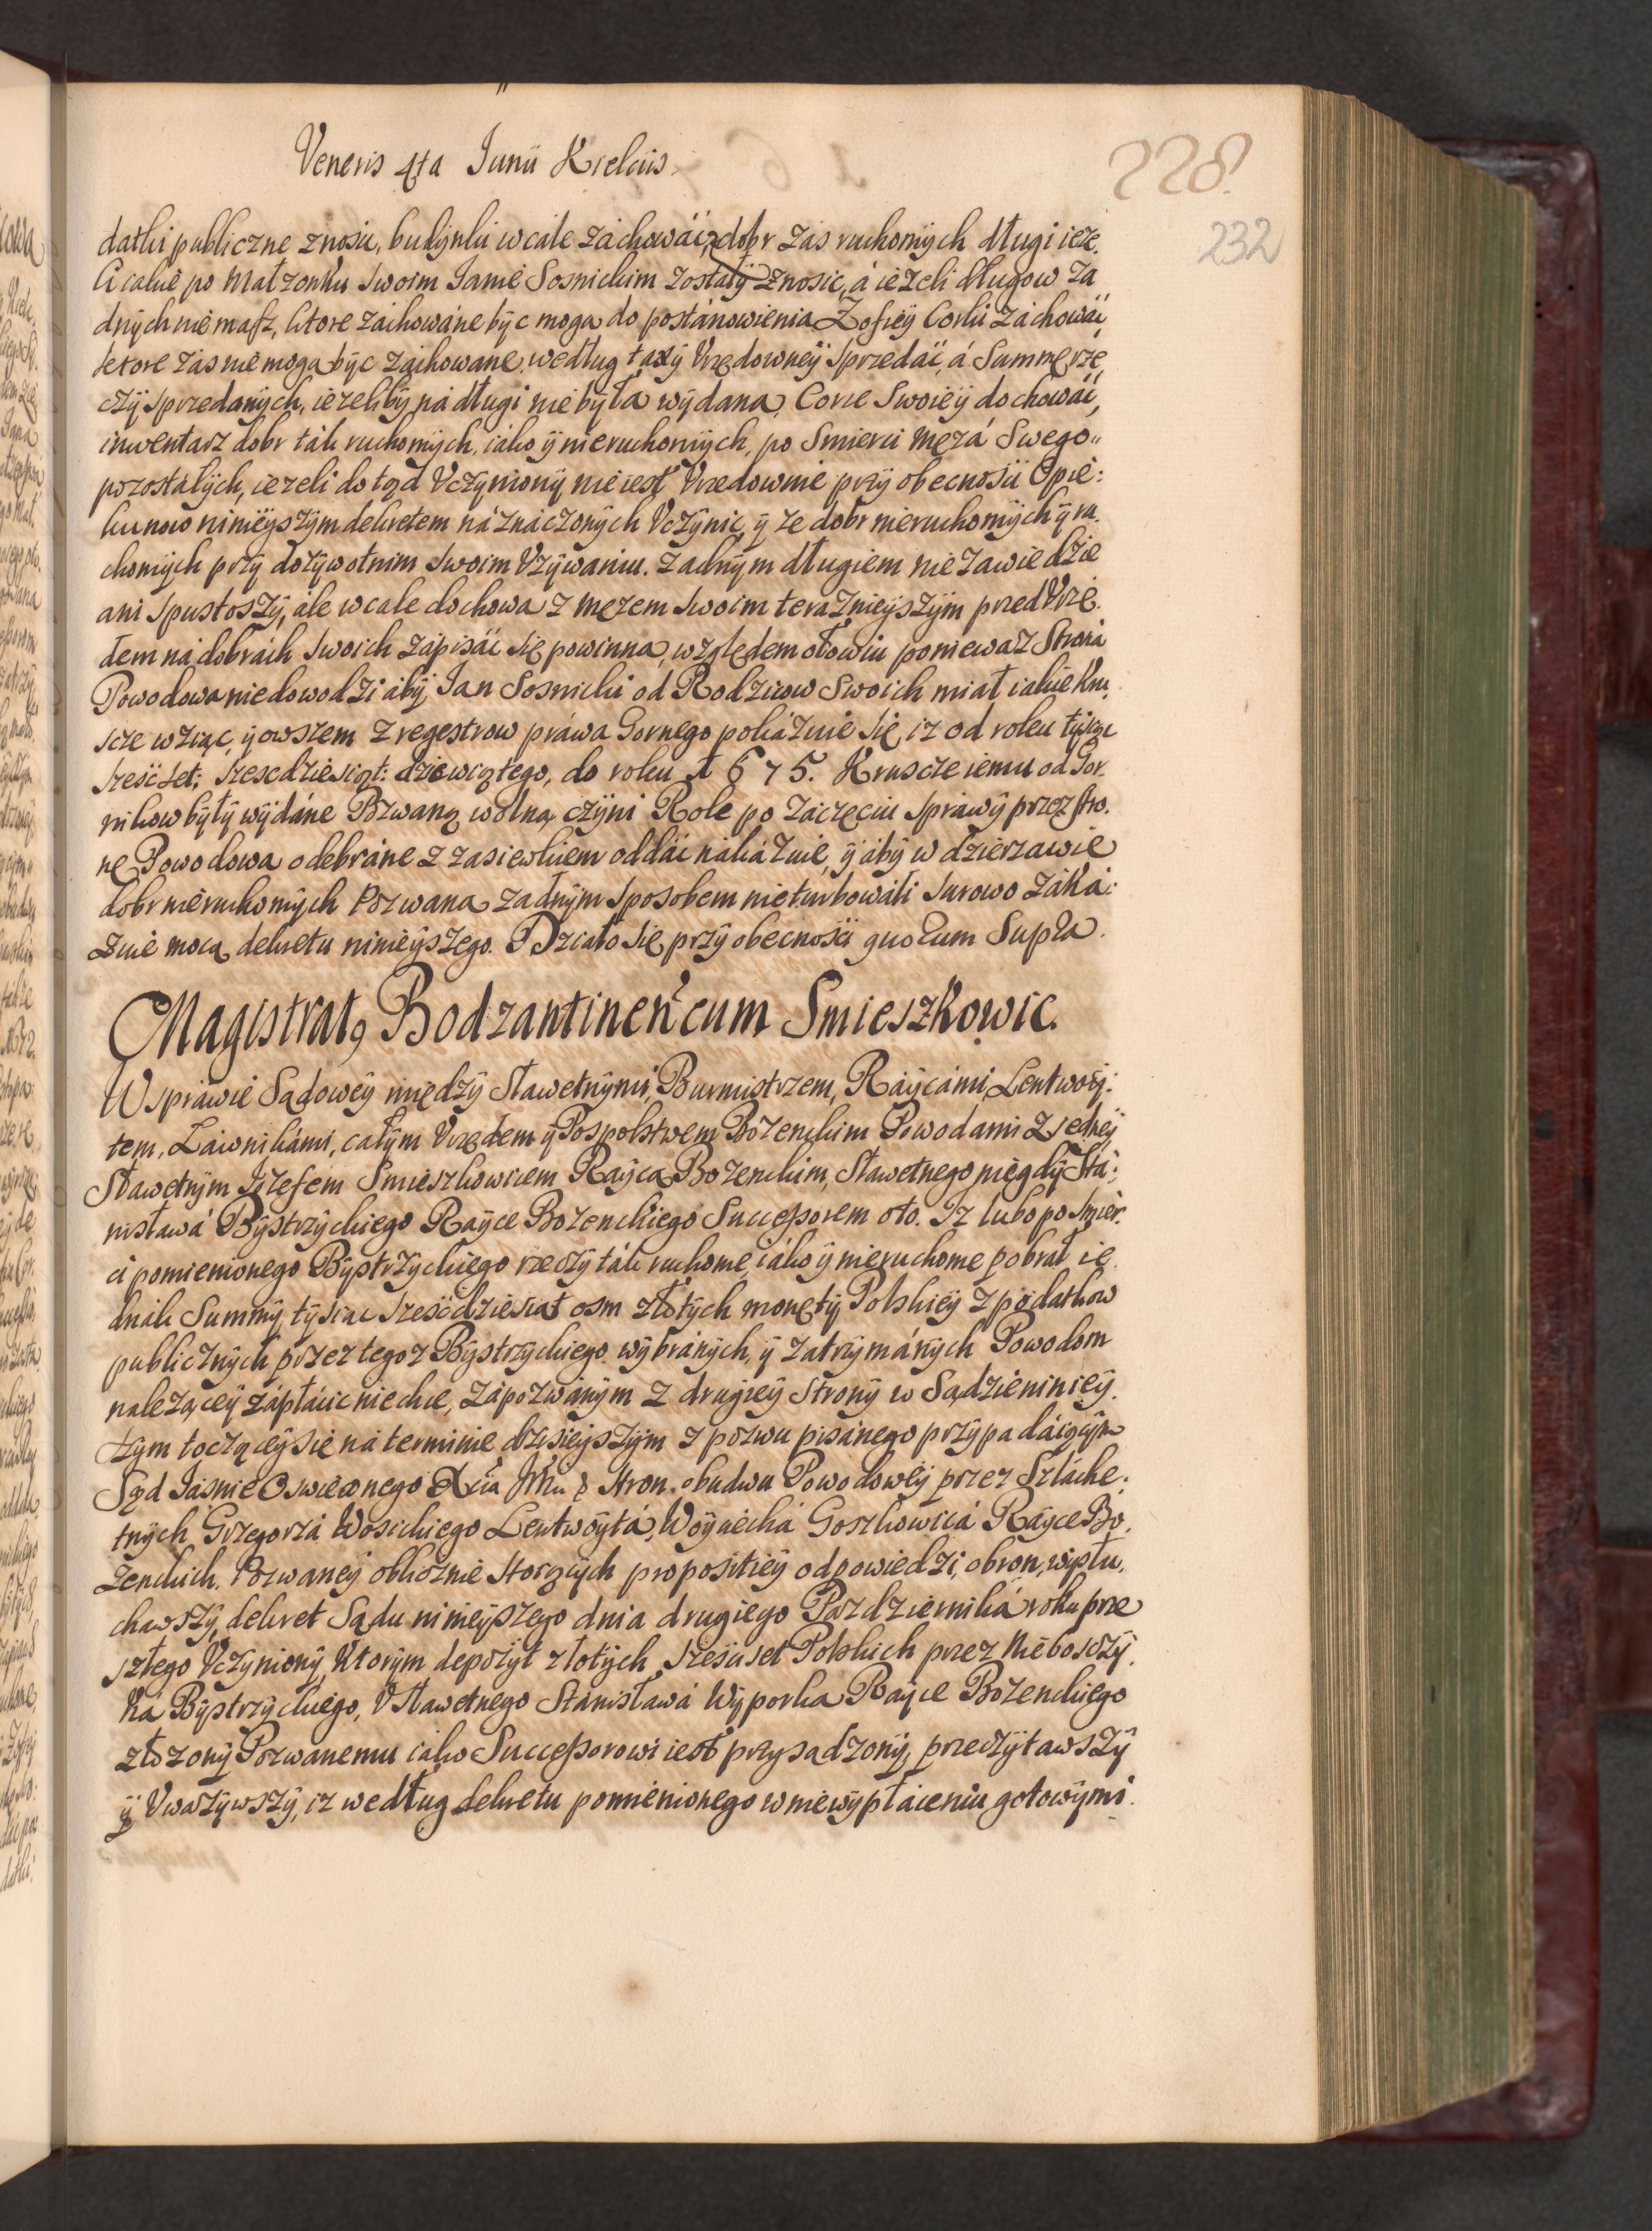 Veneris 4ta Iunii Kielciis.
228.
232
datki publiczne znosic, budynki wcale záchowáć, z dobr zas ruchomych długi ieze,
li iakie po Małzonku swoim Ianie Sosnickim zostały znosic, á iezeli długow za
dnych niemasz, ktore záchowáne byc moga do postánowienia Zofiey Corki záchowáć,
ktore zas nie moga byc záchowane, według taxy Vrzędowney sprzedáć, á Summę rze,
czy sprzedanych, iezeliby ná długi nie była wydana, Corce Swoiey dochowáć,
inwentarz dobr ták ruchomych, iáko y nieruchomych, po Smierci męzá Swego
pozostałych, iezeli dotąd Vczyniony nie iest Vrzedownie przy obecnosci Opie:
kunow ninieyszym dekretem náznáczonych Vczynic, y ze dobr nieruchomych y ru,
chomych przy dozywotnim swoim Vzywaniu. zadnym długiem nie zawiedzie
ani spustoszy, ále wcale dochowa z męzem swoim teraznieyszym przed Vrzę
dem ná dobrách swoich zápisáć się powinna, względem ołowiu poniewaz Strona
Powodowa niedowodzi áby Ian Sosnicki od Rodzicow Swoich miał iakie Kru,
scze wziąc, y owszem z regestrow práwa Gornego pokázuie się, iz od roku tysiąc
szesćset: szescdziesiąt: dziewiątego, do roku 1675. Kruscze iemu od Gor,
nikow były wydáne Pozwaną wolną czyni Role po záczęciu spráwy przez stro,
nę Powodowa odebráne z zasiewkiem oddáć nákázuie, y áby w dzierzawie
dobr nieruchomych Pozwana zadnym sposobem nie turbowáli surowo záká:
zuie mocą dekretu ninieyszego. Działo się przy obecnosci quorum Supra.
Magistrat9 Bodzantineń cum Smieszkowic.
W spráwie Sądowey między Sławetnymi, Burmistrzem, Ráycámi, Lentwoy:
tem, Ławnikámi, całym Vrzędem y Pospolstwem Bozenckim Powodami z iedney
Sławetnym Iozefem Smieszkowicem Raycą Bozenckim, Sławetnego niegdy Stá:
nisławá Bystrzyckiego Rayce Bozenckiego Successorem oto. Iz lubo po smier,
ci pomienionego Bystrzyckiego rzeczy ták ruchome, iáko y nieruchome pobrał ie
dnák Summy, tysiac szesćdziesiat osm złotych monety Polskiey z podatkow
publicznych przez tegoz Bystrzyckiego wybránych, y zatrzymánych Powodom
nalezącey zápłácic niechce, zápozwánym z drugiey strony w Sądzie niniey,
szym toczącey się ná terminie dzisieyszym z pozwu pisánego przypadáiącym
Sąd Iasnie Oswieconego stron obudwu Powodowey przez Szláche:
tnych Grzegorzá Wosickiego Lentwoytá, Woyciechá Goszkowicá Rayce Bo,
zenckich. Pozwaney oblicznie stoiących propositiey odpowiedzi, obron, wysłu,
chawszy, dekret Sądu ninieyszego dnia drugiego Pazdzierniká roku prze
szłego Vczyniony, Ktorym depozyt złotych szescset Polskich przez Niebosczy,
ká Bystrzyckiego, V Sławetnego Stánisławá Wyporka Rayce Bozenckiego
złozony Pozwanemu iako Successorowi iest przysądzony, przeczytawszy
y Vwazywszy, iz według dekretu pomienionego w niewypłáceniu gotowymi